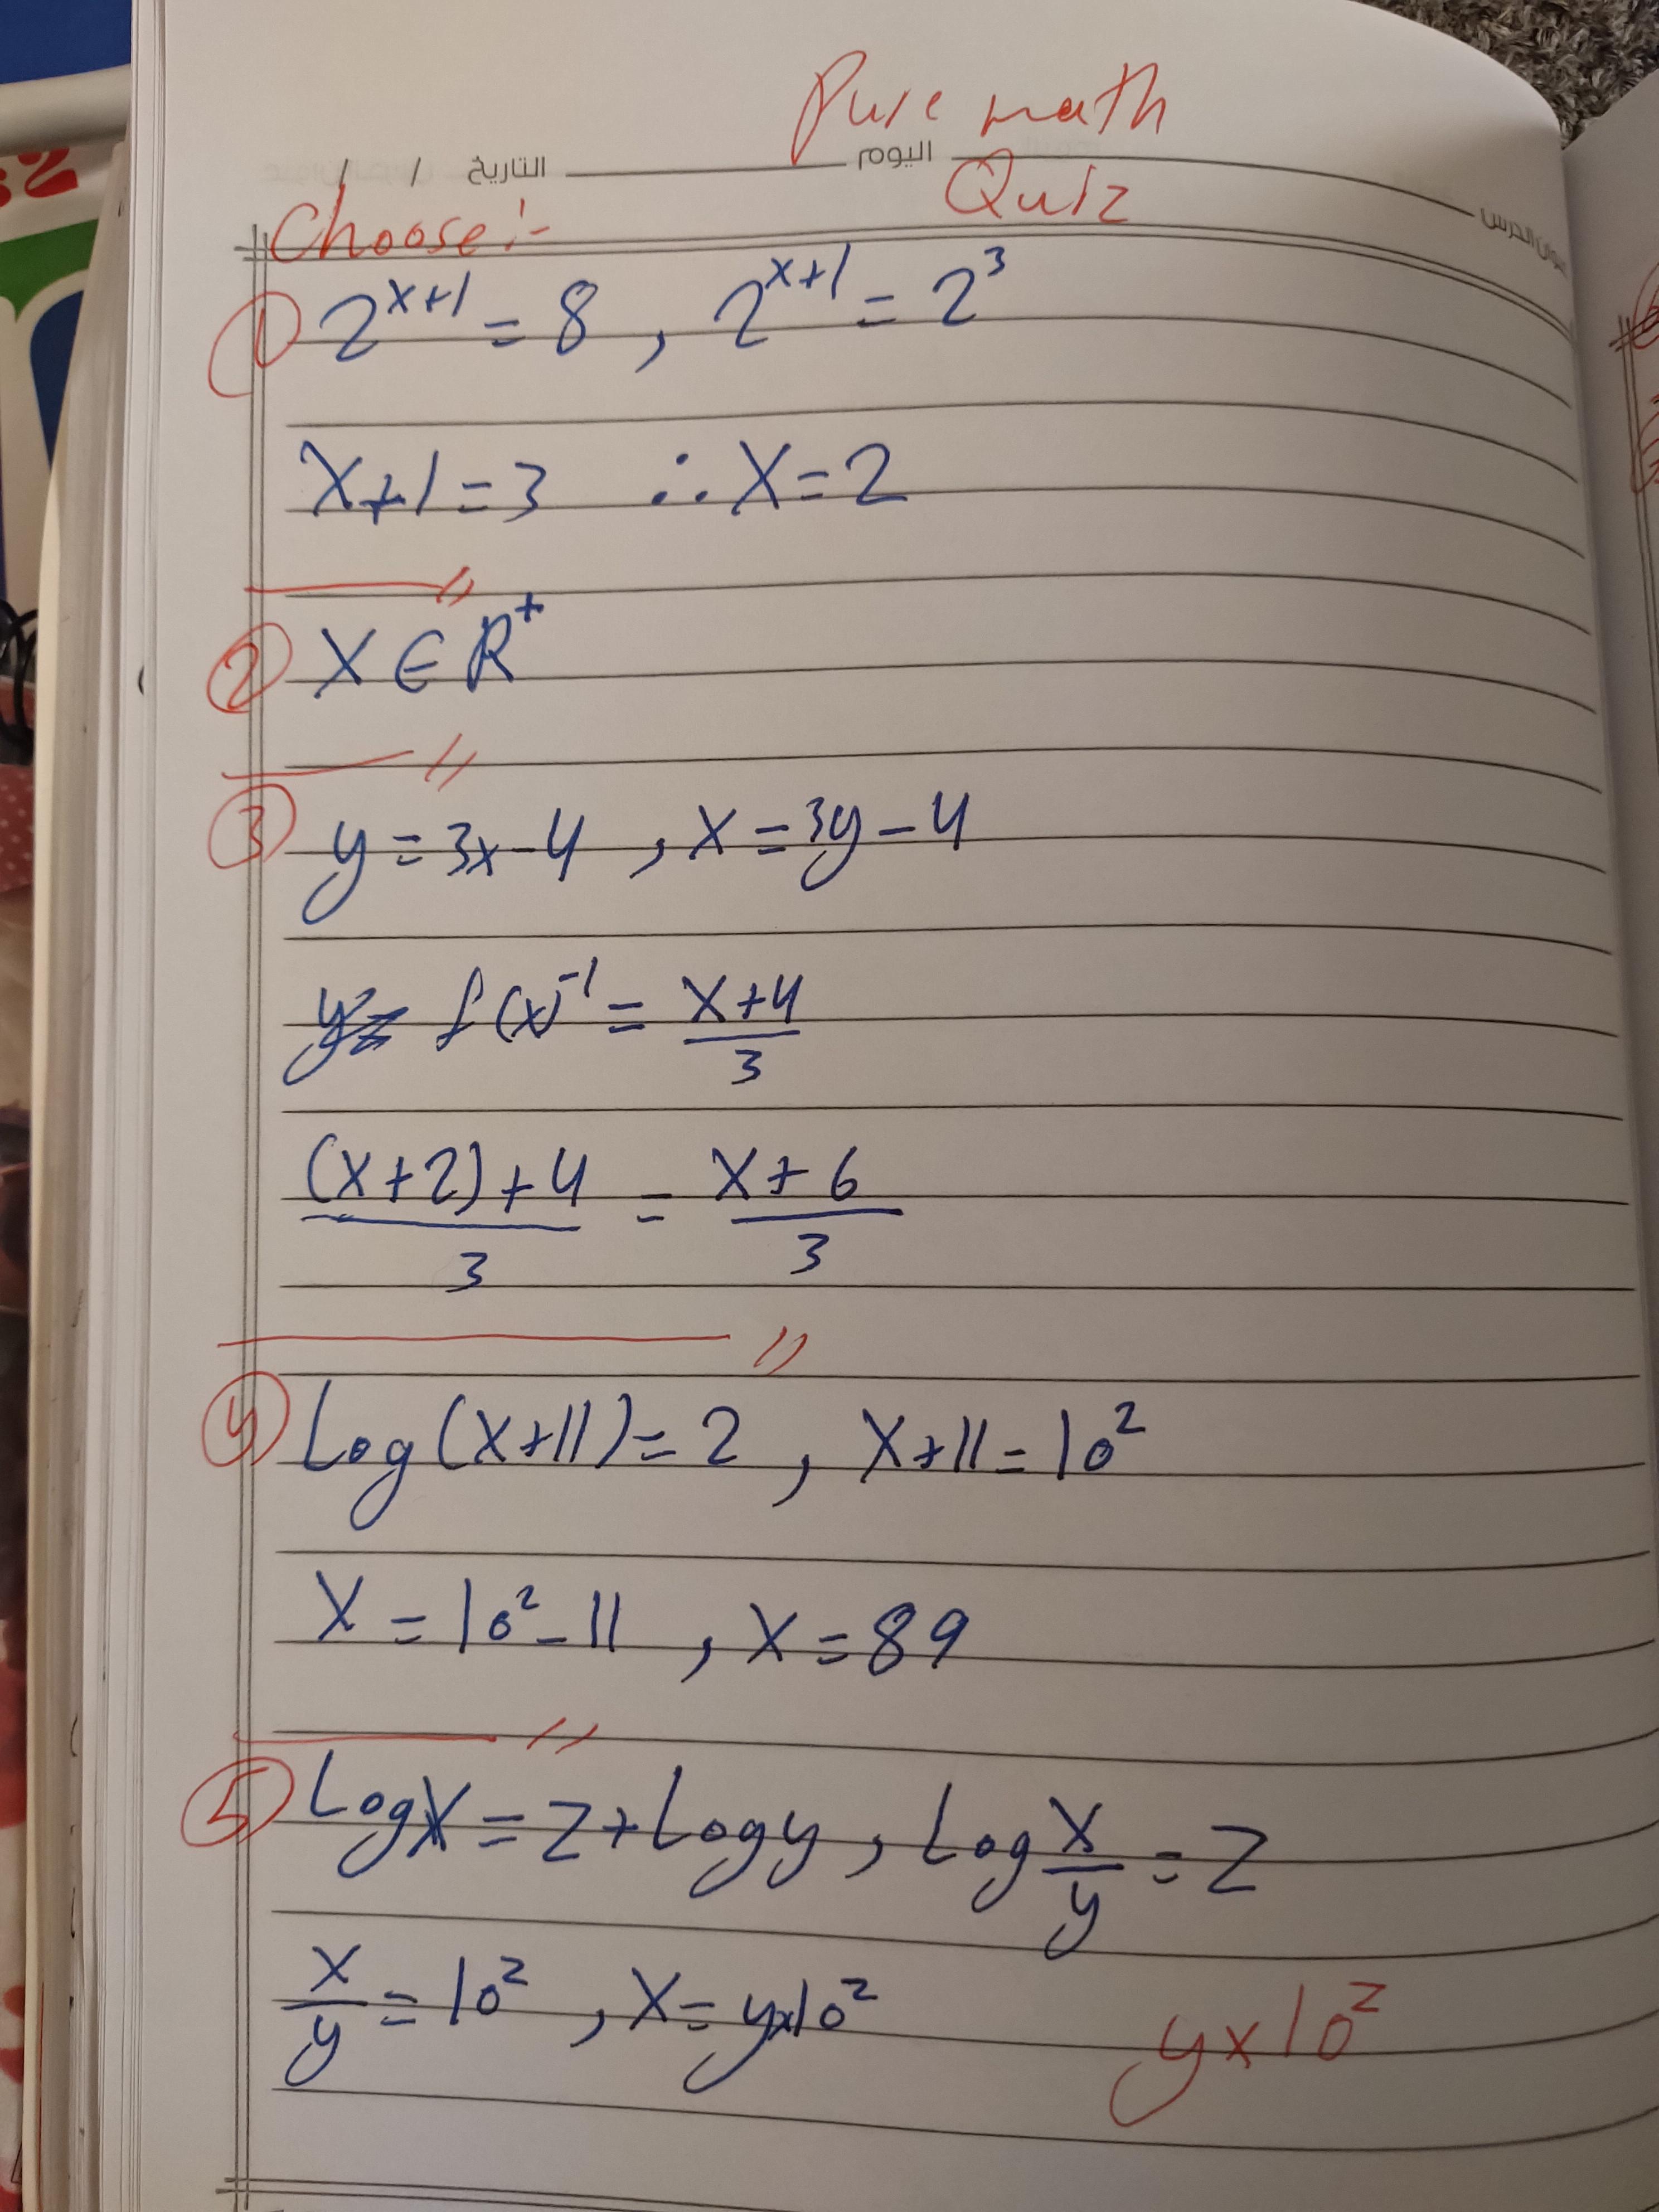 Pure math
التاريخ / / اليوم عنوان الدرس
Quiz
Choose:-
① 2^{x+1} = 8 , 2^{x+1} = 2^3
x+1=3 ∴ x=2
② x ∈ R^+
③ y=3x-4 , x=3y-4
f(x)^{-1} = \frac{x+4}{3}
\frac{(x+2)+4}{3} = \frac{x+6}{3}
④ Log(x+11)=2 , x+11=10^2
x=10^2-11 , x=89
⑤ Logx=z+Logy , Log\frac{x}{y}=z
\frac{x}{y}=10^z , x=y×10^z y×10^z